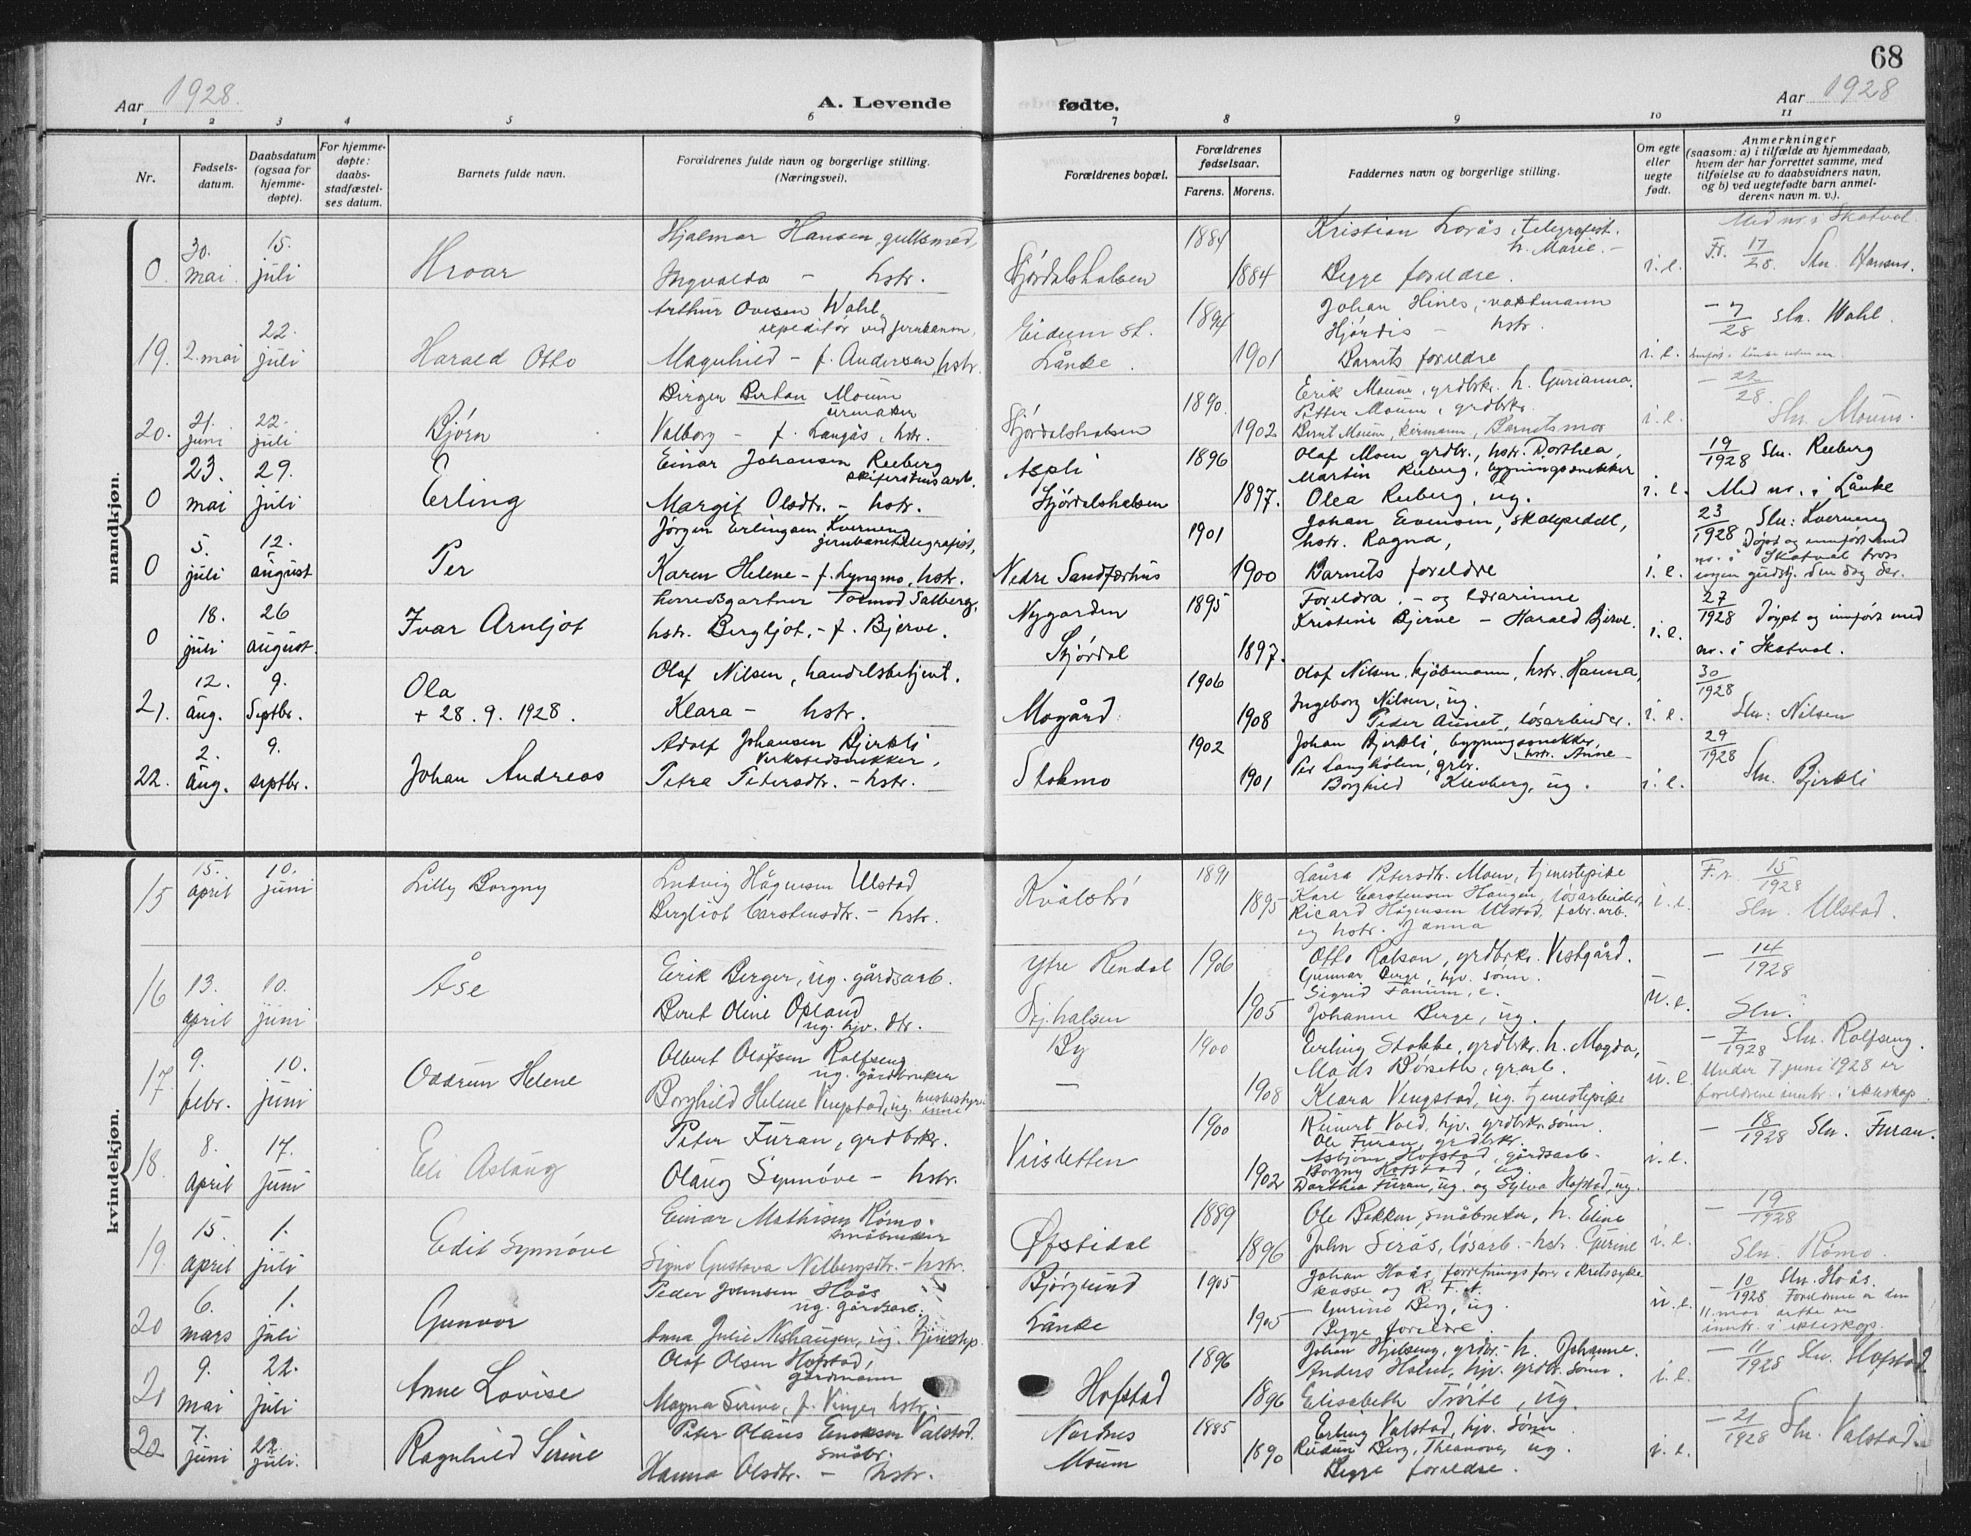 68
Aar 1928.
A. Levende
fødte.
Aar 1928
1 2 3 4 5 6 7 8 9 10 11
Nr.
Fødsels-
datum.
Daabsdatum
(ogsaa for
hjemme-
døpte).
For hjemme-
døpte:
daabs-
stadfæstel-
ses datum.
Barnets fulde navn.
Forældrenes fulde navn og borgerlige stilling.
(Næringsvei).
Forældrenes bopæl.
Forældrenes
fødselsaar.
Farens. Morens.
Faddernes navn og borgerlige stilling.
Om egte
eller
uegte
født.
Anmerkninger
(saasom: a) i tilfælde av hjemmedaab,
hvem der har forrettet samme, med
tilføielse av to daabsvidners navn,
og b) ved uegtefødte barn anmel-
derens navn m. v.).
mandkjøn.
0 30. mai 15. juli Hroar
Hjalmar Hansen, gullsmed,
Ingvalda — hstr.
Stjørdalshalsen 1884 1884
Kristian Lorås, telegrafist.
h. Marie. —
Begge foreldre.
i. e.
Med nr. i Skatval.
Fr. 17/28. Sln. Hansen.
19. 2. mai 22. juli Harald Otto
Arthur Ovesen Wahl,
expeditør ved jernbanen,
Magnhild — f. Andersen, hstr.
Eidum st.
Lånke. 1894 1901
Johan Hines, vaktmann
Hjørdis — hstr.
Barnets foreldre
i. e.
— 7/28 sln. Wahl.
20. 21. juni 22. juli Bjørn
Birger Berton Moum
urmaker
Valborg — f. Langås, hstr.
Stjørdalshalsen 1890. 1902
Erik Moum, grdbrkr. h. Gurianna.
Petter Moum, grdbrkr.
Bernt Moum, Barnets mor
i. e.
— 22/28.
Sln. Moum.
0 23. mai 29. juli Erling
Einar Johansen Reeberg
skiferstensarb.
Margit Olsdtr. — hstr.
Aspli
Stjørdalshalsen 1896 1897.
Olaf Moen grdbr., hstr. Dorthea,
Martin Reeberg, bygningssnekker
Olea Reeberg, ug.
i. e.
19/1928 Sln. Reeberg
Med nr. i Lånke
0 5. juli 12. august Per
Jørgen Erlingsen Kverning
jernbanetelegrafist,
Karen Helene — f. Lyngmo, hstr.
Nedre Sandfærhus 1901 1900
Johan Evensen, skolepedell,
hstr. Ragna,
Barnets foreldre
i. e.
23/1928 Sln: Kverning
Døpt og innført med
nr. i Skatval tross
ingen gudstj. den dag der.
0 18. juli 26 august. Ivar Arnljot
Tormod Salberg,
hstr. Bergljot, — f. Bjerve.
Nygarden
Stjørdal 1895 1897.
Foreldra. — og lærarinne
Kristine Bjerve — Harald Bjerve.
i. e.
27/1928 Døypt og innført med
nr. i Skatval.
21. 12. aug. 9. Septbr. Ola
+ 28. 9. 1928.
Olaf Nilsen, handelsbetjent.
Klara — hstr.
Mogård 1906 1908
Olaf Nilsen, kjøbmann, hstr. Hanna,
Ingeborg Nilsen, ug.
Peder Aunet, løsarbeider.
i. e.
30/1928
Sln: Nilsen
22. 2. aug. 9. septbr. Johan Andreas
Adolf Johansen Bjerkli
verkstedsnekker,
Petra Petersdtr. — hstr.
Stokmo 1902 1901
Johan Bjerkli, bygningssnekker,
hstr. Anne —
Per Langhølen, grbr.
Borghild Klevberg, ug.
i. e.
29/1928
Sln. Bjerkli
kvindekjøn.
15 15. april 10. juni Lilly Borgny
Ludvig Hågensen Ulstad
Bergliot Carstensdtr. — hstr.
Kvålstrø 1891 1895
Laura Petersdtr. Moen, tjenestepike
Karl Carstensen Haugen, løsarbeider,
Ricard Hågensen Ulstad, fabr. arb.
og hstr. Janna
i. e.
F. n. 15/1928
Sln. Ulstad.
16 13. april 10. juni Åse
Erik Berger, ug. gårdsarb.
Beret Oline Opland
ug. hjv. dtr.
Ytre Rendal
Stj. halsen 1906 1905
Otto Rolson, grdbrkr. Vestgård.
Gunnar Berge, hjv. sønn.
Sigrid Fanum, e.
Johanne Berge, ug.
u. e.
— 14/1928
Sln.
17 9. febr. 10. juni Oddrun Helene
Albert Olafsen Rolfseng
ug. gårdbruker
Borghild Helene Vingstad, ug. husbestyrerinne
By
— 1900 1908
Erling Stokke, grdbrkr. h. Magda,
Mads Børseth, grarb.
Klara Vingstad, ug. tjenestepike
u. e.
— 7/1928 Sln. Rolfseng.
Under 7 juni 1928 er
foreldrene inntr. i ekteskap
18. 8. april 17. juni Eli Aslaug
Peter Furan, grdbrkr.
Olaug Synnøve — hstr.
Vinsletten 1900 1902
Reinert Vold, hjv. grdbrkr. sønn.
Ole Furan, grdbrkr.
Asbjørn Hofstad, gårdsarb.
Borgny Hofstad, ug.
Dorthea Furan, ug. og Sylva Hofstad, ug.
i. e.
— 18/1928 Sln. Furan.
19. 15. april 1. juli Edit Synnøve
Einar Mathisen Rømo.
småbruker
Signe Gustava Nilbergsdtr. — hstr.
Øfstidal 1889 1896
Ole Bakken, småbruker, h. Eline
John Serås, løsarb. — hstr. Gurine
i. e.
— 19/1928
Sln. Rømo.
20 6. mars 1. juli Gunvor
Peder Johnsen Hoås
ug. gårdsarb.
Anna Julie Neshaugen, ug. tjenestep.
Bjørglund
Lånke 1905 1905
Johan Hoås, forretningsfører i kretssykekasse og R. F. A.
— Gurine Berg, ug.
Begge foreldre.
u. e.
— 10/1928 Sln. Hoås.
Foreldrene er den
11. mai dette år
inntr. i ekteskap.
21 9. mai 22. juli Anne Lovise
Olaf Olsen Hofstad,
gårdmann
Magna Serine, f. Vinge, hstr.
Hofstad 1896 1896
Johan Hjelseng, grdbr. — h. Johanne.
Anders Holm, hjv. grdbr. sønn.
Elisabeth Trøite, ug.
i. e.
— 11/1928 Sln. Hofstad
22 7. juni 22. juli. Ragnhild Serine
Peter Olaus Eriksen Valstad.
småbr.
Hanna Olsdtr. — hstr.
Nordnes
Moum 1885 1890
Erling Valstad, hjv. sønn
Reidun Berg, ug.
Begge foreldre.
i. e.
— 21/1928 Sln. Valstad